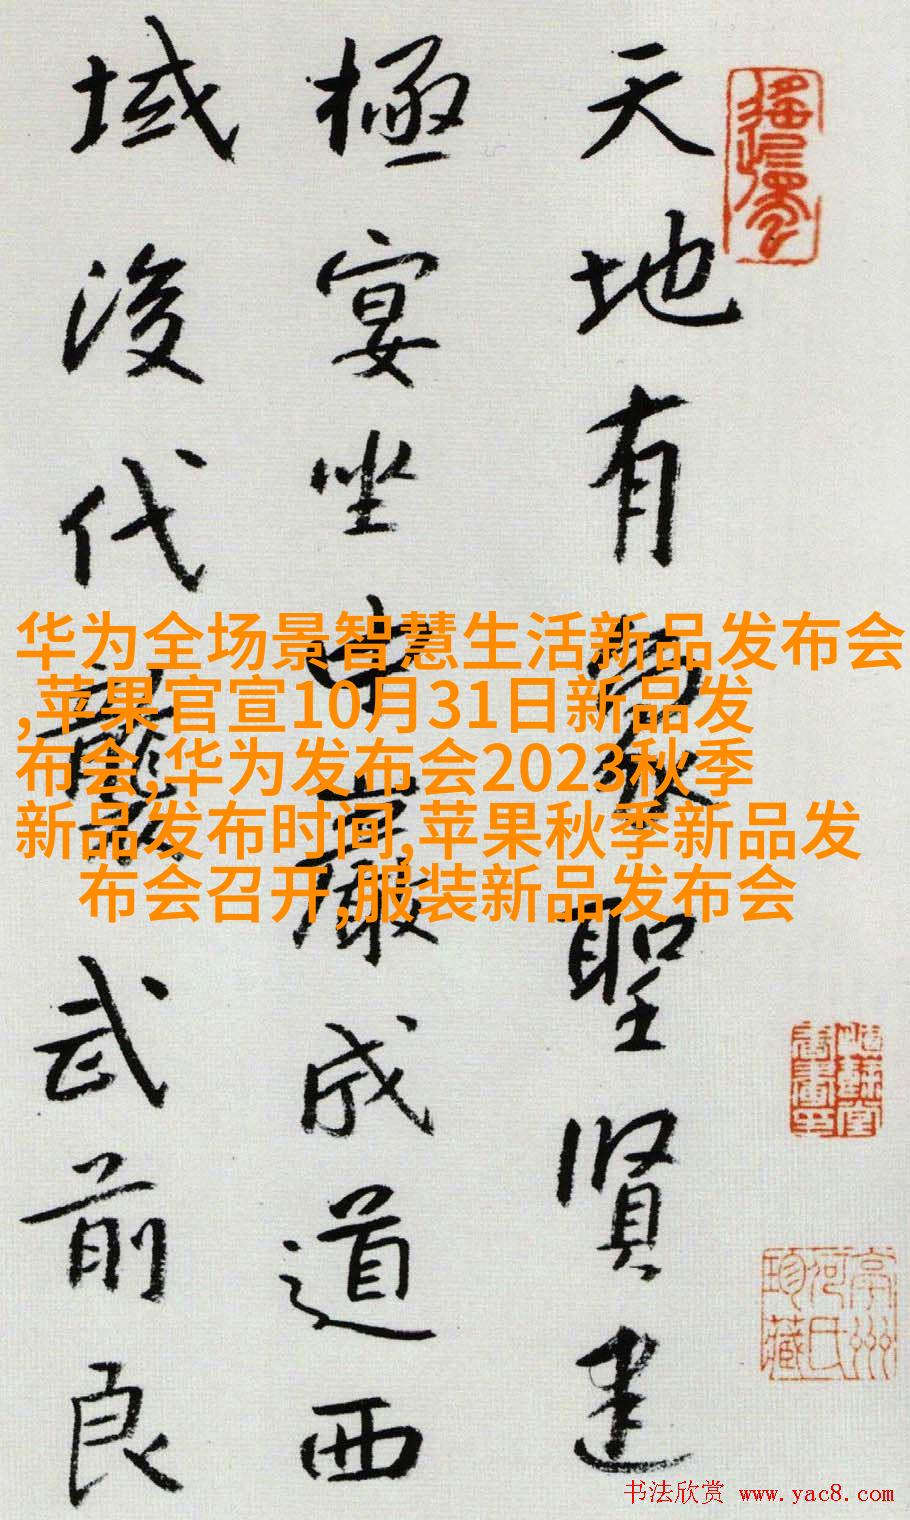 天地有象聖賢建
極宴坐中成道西
域後代武前良
华为全场景智慧生活新品发布会
,苹果官宣10月31日新品发
布会,华为发布会2023秋季
新品发布时间,苹果秋季新品发
布会召开,服装新品发布会
书法欣赏 www.yac8.com